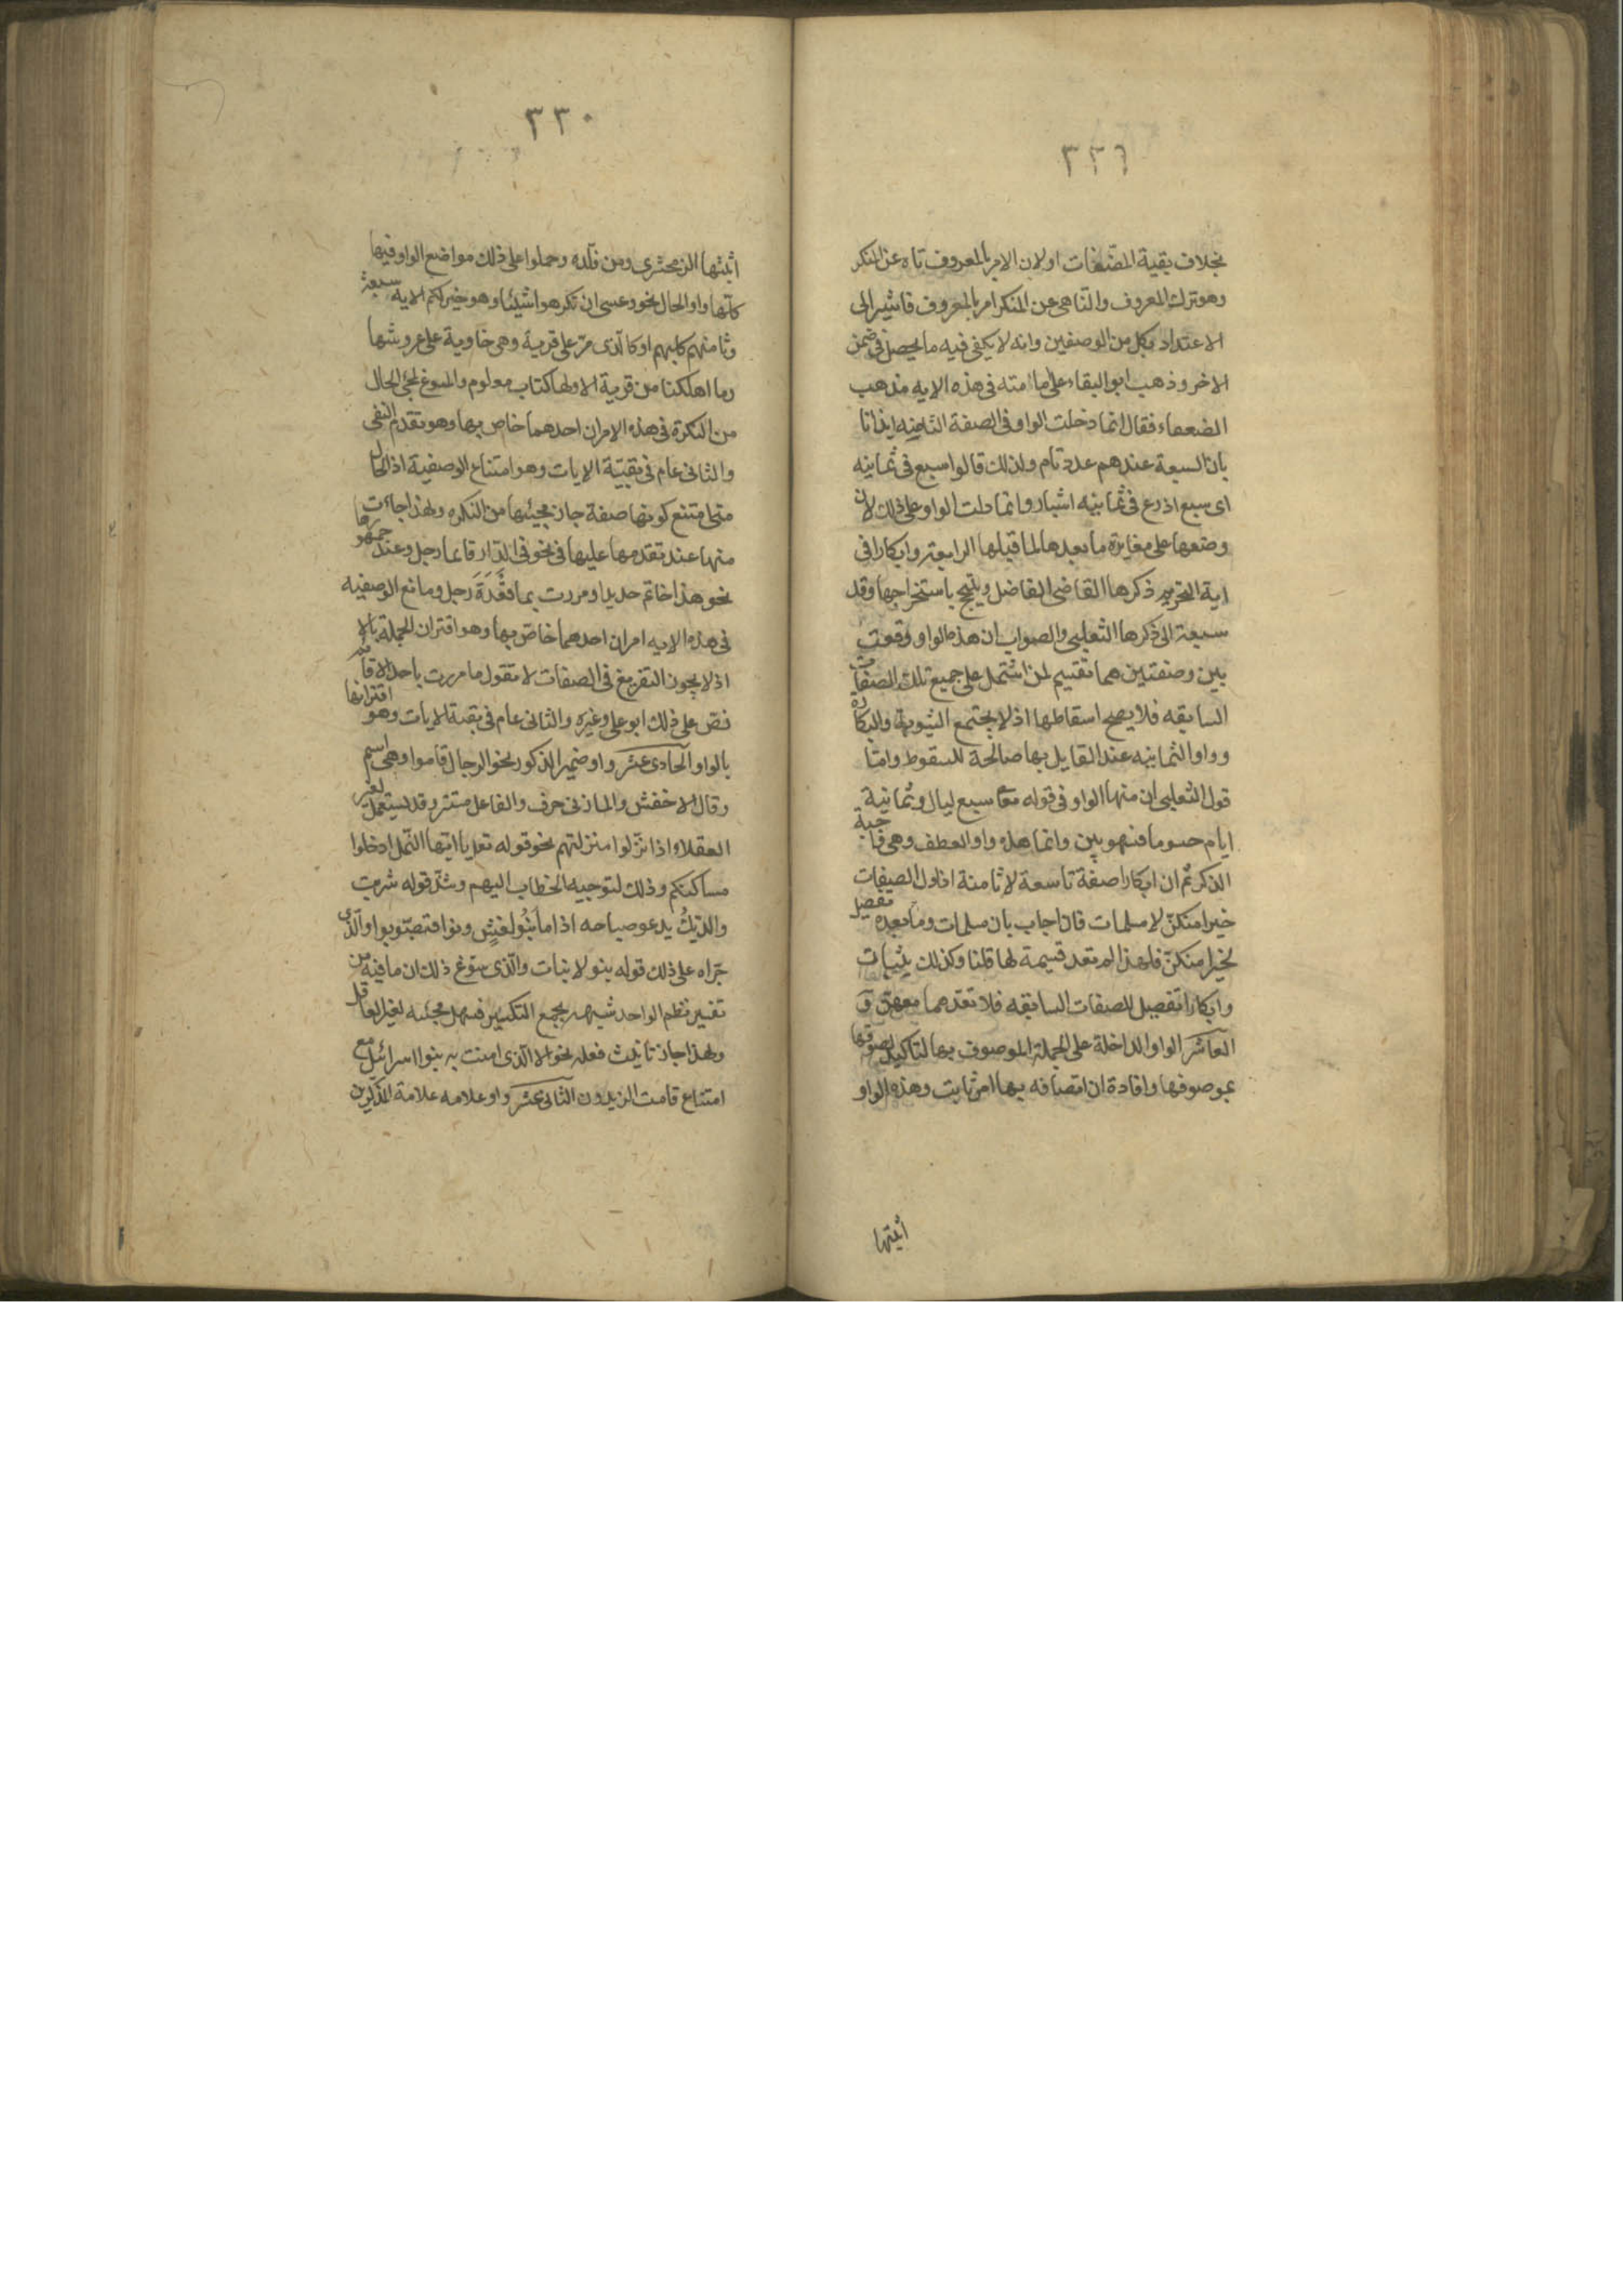 ٣٢٩
بخلاف بقية الصفات اولان الامر بالمعروف ناه عن المنكر
وهو ترك المعروف والناهى عن المنكر امر بالمعروف فاشير الى
الاعتداد بكل من الوصفين وانه لا يكفى فيه ما يحصل فى ضمن
الاخر وذهب ابو البقاء على امامته فى هذه الايه مذهب
الضعفاء فقال انما دخلت الواو فى الصفة الثامنه ايذانا
بان السبعة عندهم عدد تام ولذلك قالوا سبع فى ثمانيه
اى سبع اذرع فى ثمانيه اشبار وانما دلت الواو على ذلك لان
وضعها على مغايرة ما بعدها لما قبلها الرابعة وابكارا فى
اية التحريم ذكرها القاضى الفاضل وتبجح باستخراجها وقد
سبقه الى ذكرها الثعلبى والصواب ان هذه الواو وقعت
بين وصفتين هما تقسيم لمن اشتمل على جميع تلك الصفات
السابقه فلا يصح اسقاطها اذ لا يجتمع الثيوبة والبكاره
وواو الثمانيه عند القايل بها صالحة للسقوط وامّا
قول الثعلبى ان منها الواو فى قوله تعالى سبع ليال وثمانية
ايام حسوما فسهو بين وانما هذه واو العطف وهى واجبة
الذكر ثم ان ابكارا صفة تاسعة لا ثامنة اذ اول الصفات
خيرا منكنّ لا مسلمات فان اجاب بان مسلمات وما بعده تفصيل
لخيرا منكنّ فلهذا لم تعد قسيمة لها قلنا وكذلك ثيبات
وابكارا تفصيل للصفات السابقه فلا تعدهما معهنّ و
العاشر الواو الداخلة على الجملة الموصوف بها لتاكيد لصوقها
بموصوفها وافادة ان اتصافه بها امر ثابت وهذه الواو
اثبتها
٣٣٠
اثبتها الزمخشرى ومن قلّده وحملوا على ذلك مواضع الواو فيها
كلّها واو الحال نحو وعسى ان تكرهوا شيئا وهو خير لكم الايه سبعة
وثامنهم كلبهم او كالّذى مرّ على قرية وهى خاوية على عروشها
وما اهلكنا من قرية الا ولها كتاب معلوم والمسوغ لمجئ الحال
من النكرة فى هذه الامران احدهما خاص بها وهو تقدم النفى
والثانى عام فى بقيّة الايات وهو امتناع الوصفية اذ الحال
متى امتنع كونها صفة جاز مجيئها من النكره ولهذا جاءت
منها عند تقدمها عليها فى نحو فى الدّار قائما رجل وعند جمودها
نحو هذا خاتم حديدا ومررت بماء قعدة رجل ومانع الوصفيه
فى هذه الايه امران احدهما خاصّ بها وهو اقتران الجملة بالا
اذ لا يجوز التفريغ فى الصفات لا تقول ما مررت باحد الا قائم
نص على ذلك ابو على وغيره والثانى عام فى بقية الايات وهو اقترانها
بالواو الحادى عشر واو ضمير الذكور نحو الرجال قاموا وهى اسم
وقال الاخفش والمازنى حرف والفاعل مستتر وقد يستعمل لغير
العقلاء اذا نزّلوا منزلتهم نحو قوله تعلى يا ايّها النّمل ادخلوا
مساكنكم وذلك لتوجيه الخطاب اليهم وشذّ قوله شربت
والدّيكُ يدعو صباحه اذا ما بَنُو نعشٍ دنوا فتصوّبوا والّذى
جرّاه على ذلك قوله بنو لا بنات والّذى سوّغ ذلك ان ما فيه من
تغيير نظم الواحد شبهه بجمع التكسير فسهل مجيئه لغير العاقل
ولهذا جاز تانيث فعله نحو الا الّذى امنت به بنوا اسرائيل مع
امتناع قامت الزيدون الثانى عشر واو علامه علامة المذكّرين